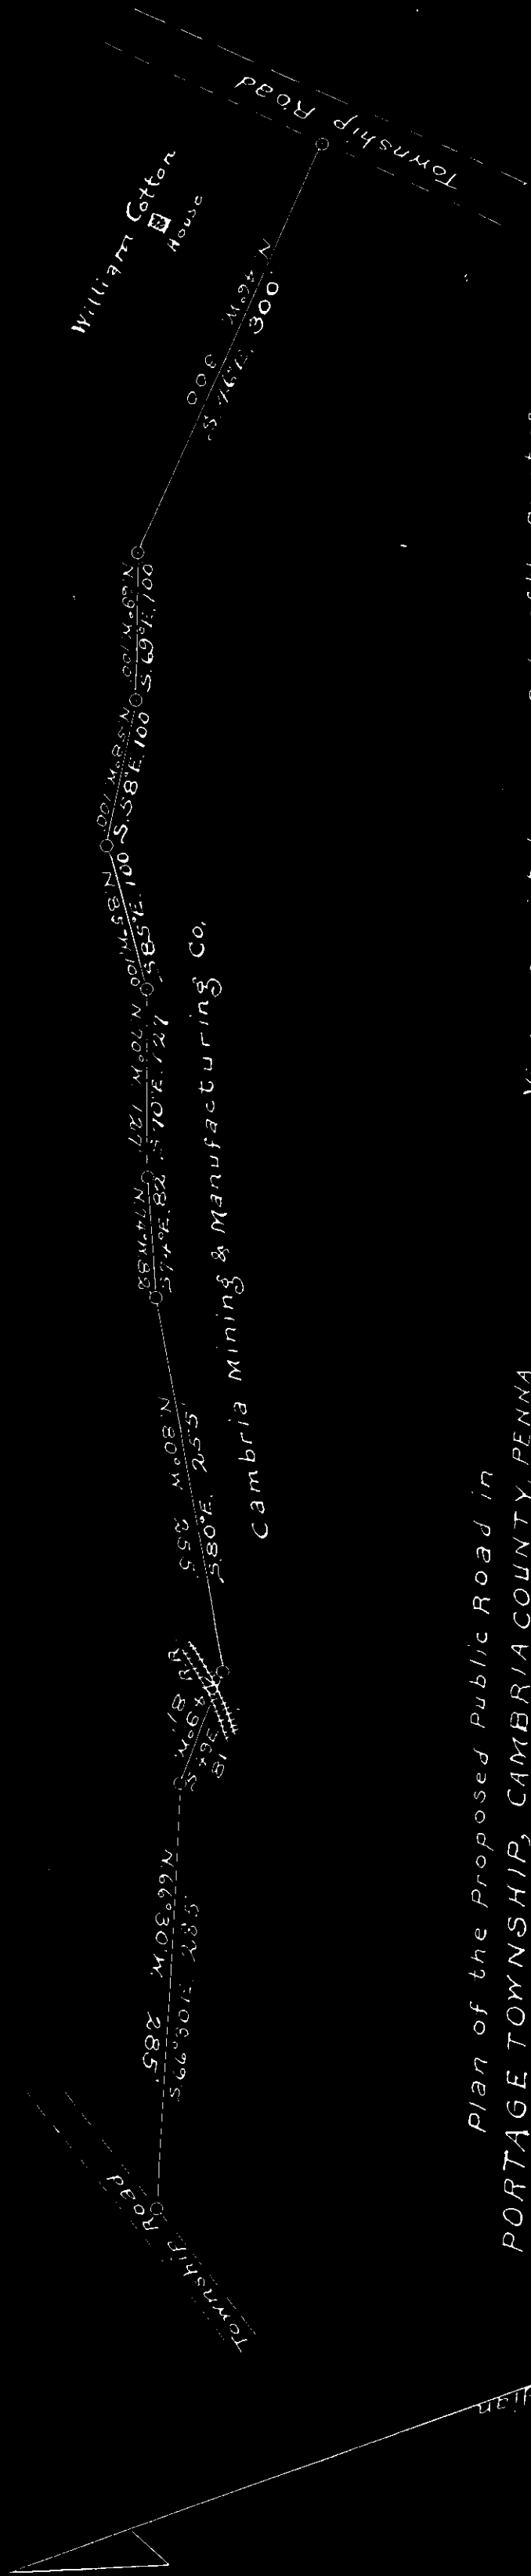 Township Road
William Cotton
House
N. 46° W. 300
S. 46° E. 300'
N. 69° W. 100'
S. 69° E. 100
N. 58° W. 100'
S. 58° E. 100
N. 85° W. 100'
S 85° E. 100
N. 70° W. 127'
S. 70° E. 127
N. 74° W. 82
S. 74° E. 82
Cambria Mining & Manufacturing Co.
N. 80° W. 255'
S 80° E. 255'
R. R.
81'
81
N. 66° 30' W. 285'
S. 66° 30' E. 285
Township Road
Plan of the Proposed Public Road in
PORTAGE TOWNSHIP, CAMBRIA COUNTY, PENNA